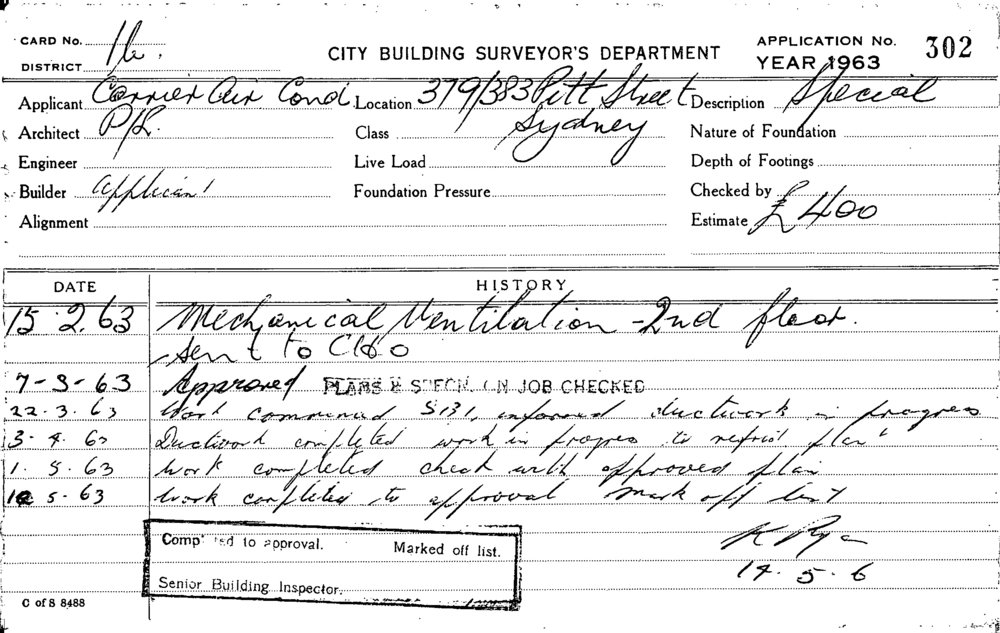 CARD No. 16. CITY BUILDING SURVEYOR'S DEPARTMENT APPLICATION No. 302
DISTRICT YEAR 1963
Applicant Carrier Air Cond Location 379/383 Pitt Street Description Special
Architect P/L. Class Sydney Nature of Foundation
Engineer Live Load Depth of Footings
Builder applicant Foundation Pressure Checked by
Alignment Estimate £400
DATE HISTORY
15.2.63 Mechanical Ventilation - 2nd floor.
Sent to
7-3-63 Approved PLANS & SPECN. ON JOB CHECKED
22.3.63 Work commenced S131, informed ductwork in progress
3.4.63 Ductwork completed work in progress to plant
1.5.63 Work completed check with approved plan
5.63 Work completed to approval mark off list
Completed to approval. Marked off list.
K
14.5.6
Senior Building Inspector.
C of S 8488